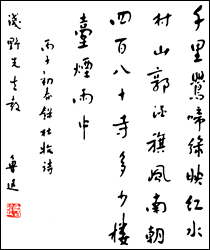 千里鶯啼綠映紅水
村山郭酒旗風南朝
四百八十寺多少樓
臺煙雨中
丙子初春錄杜牧詩
淺野先生教
魯迅